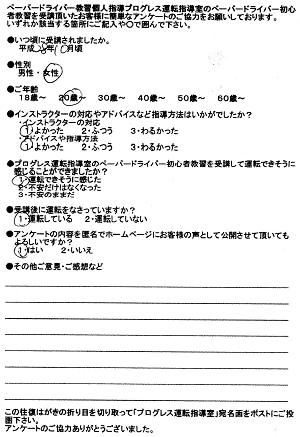 ペーパードライバー教習個人指導プログレス運転指導室のペーパードライバー初心
者教習を受講頂いたお客様に簡単なアンケートのご協力をお願いしております。
いずれか該当する箇所にご記入や〇で囲んで下さい。
●いつ頃に受講されましたか。
平成28年10月頃
●性別
男性・女性
●ご年齢
18歳~ 20歳~ 30歳~ 40歳~ 50歳~ 60歳~
●インストラクターの対応やアドバイスなど指導方法はいかがでしたか？
・インストラクターの対応
1・よかった 2・ふつう 3・わるかった
・アドバイスや指導方法
1・よかった 2・ふつう 3・わるかった
●プログレス運転指導室のペーパードライバー初心者教習を受講して運転できそうに
感じることができましたか？
1・運転できそうに感じた
2・不安だけはなくなった
3・不安のままだ
●受講後に運転をなさっていますか？
1・運転している 2・運転していない
●アンケートの内容を匿名でホームページにお客様の声として公開させて頂いても
よろしいですか？
1・はい 2・いいえ
●その他ご意見・ご感想など
この往復はがきの折り目を切り取って「プログレス運転指導室」宛名面をポストにご投
函下さい。
アンケートのご協力ありがとうございました。